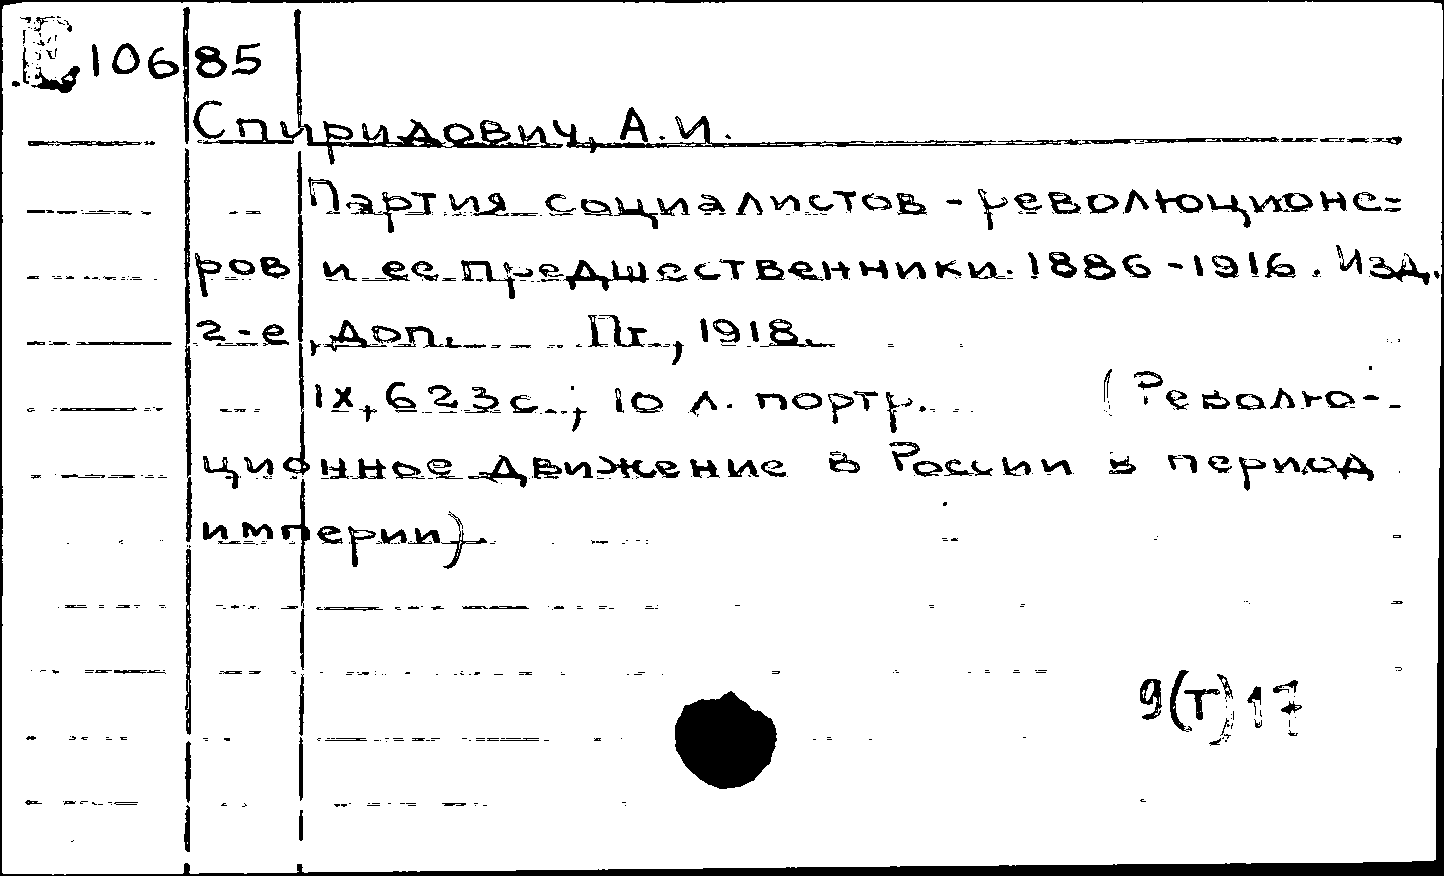 Е 10685
Спиридович, А.И.
Партия социалистов-революционе=
ров и ее предшественники. 1886-1916. Изд.
2-е, доп. Пг., 1918.
IX, 623с.; 10 л. портр. (Револю-
ционное движение в России в период
империи).
9(Т)17